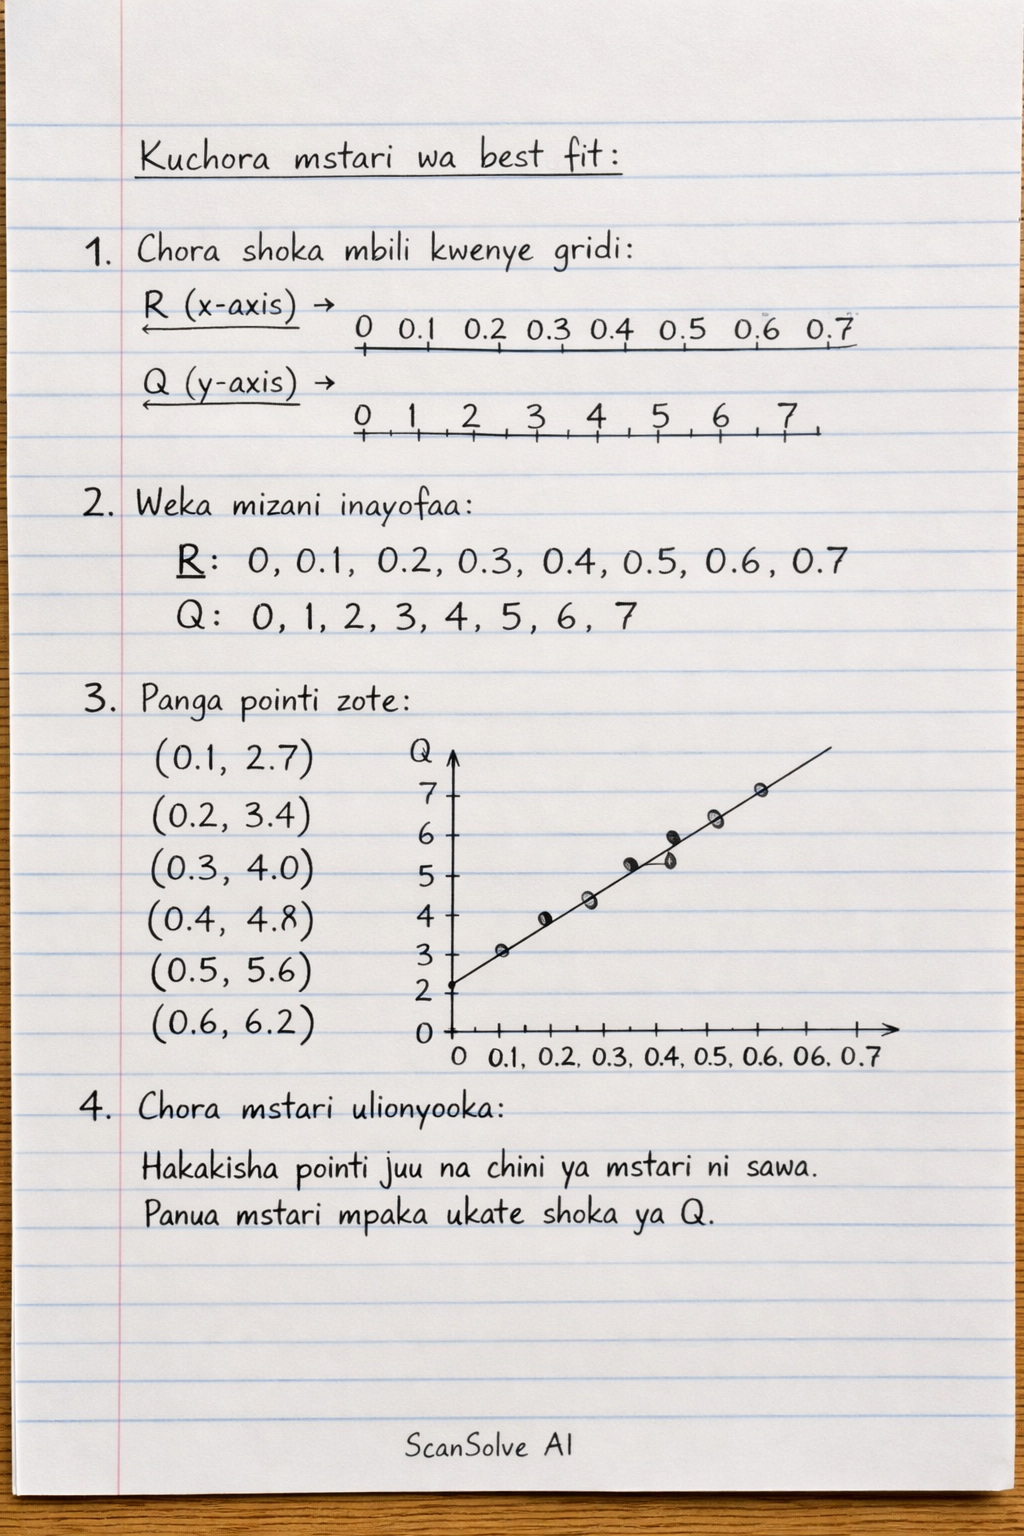 Kuchora mstari wa best fit:
1. Chora shoka mbili kwenye gridi:
R (x-axis) →
0 0.1 0.2 0.3 0.4 0.5 0.6 0.7
Q (y-axis) →
0 1 2 3 4 5 6 7
2. Weka mizani inayofaa:
R: 0, 0.1, 0.2, 0.3, 0.4, 0.5, 0.6, 0.7
Q: 0, 1, 2, 3, 4, 5, 6, 7
3. Panga pointi zote:
(0.1, 2.7)
(0.2, 3.4)
(0.3, 4.0)
(0.4, 4.8)
(0.5, 5.6)
(0.6, 6.2)
Q
7
6
5
4
3
2
0
0 0.1, 0.2, 0.3, 0.4, 0.5, 0.6, 06. 0.7
4. Chora mstari ulionyooka:
Hakakisha pointi juu na chini ya mstari ni sawa.
Panua mstari mpaka ukate shoka ya Q.
ScanSolve AI